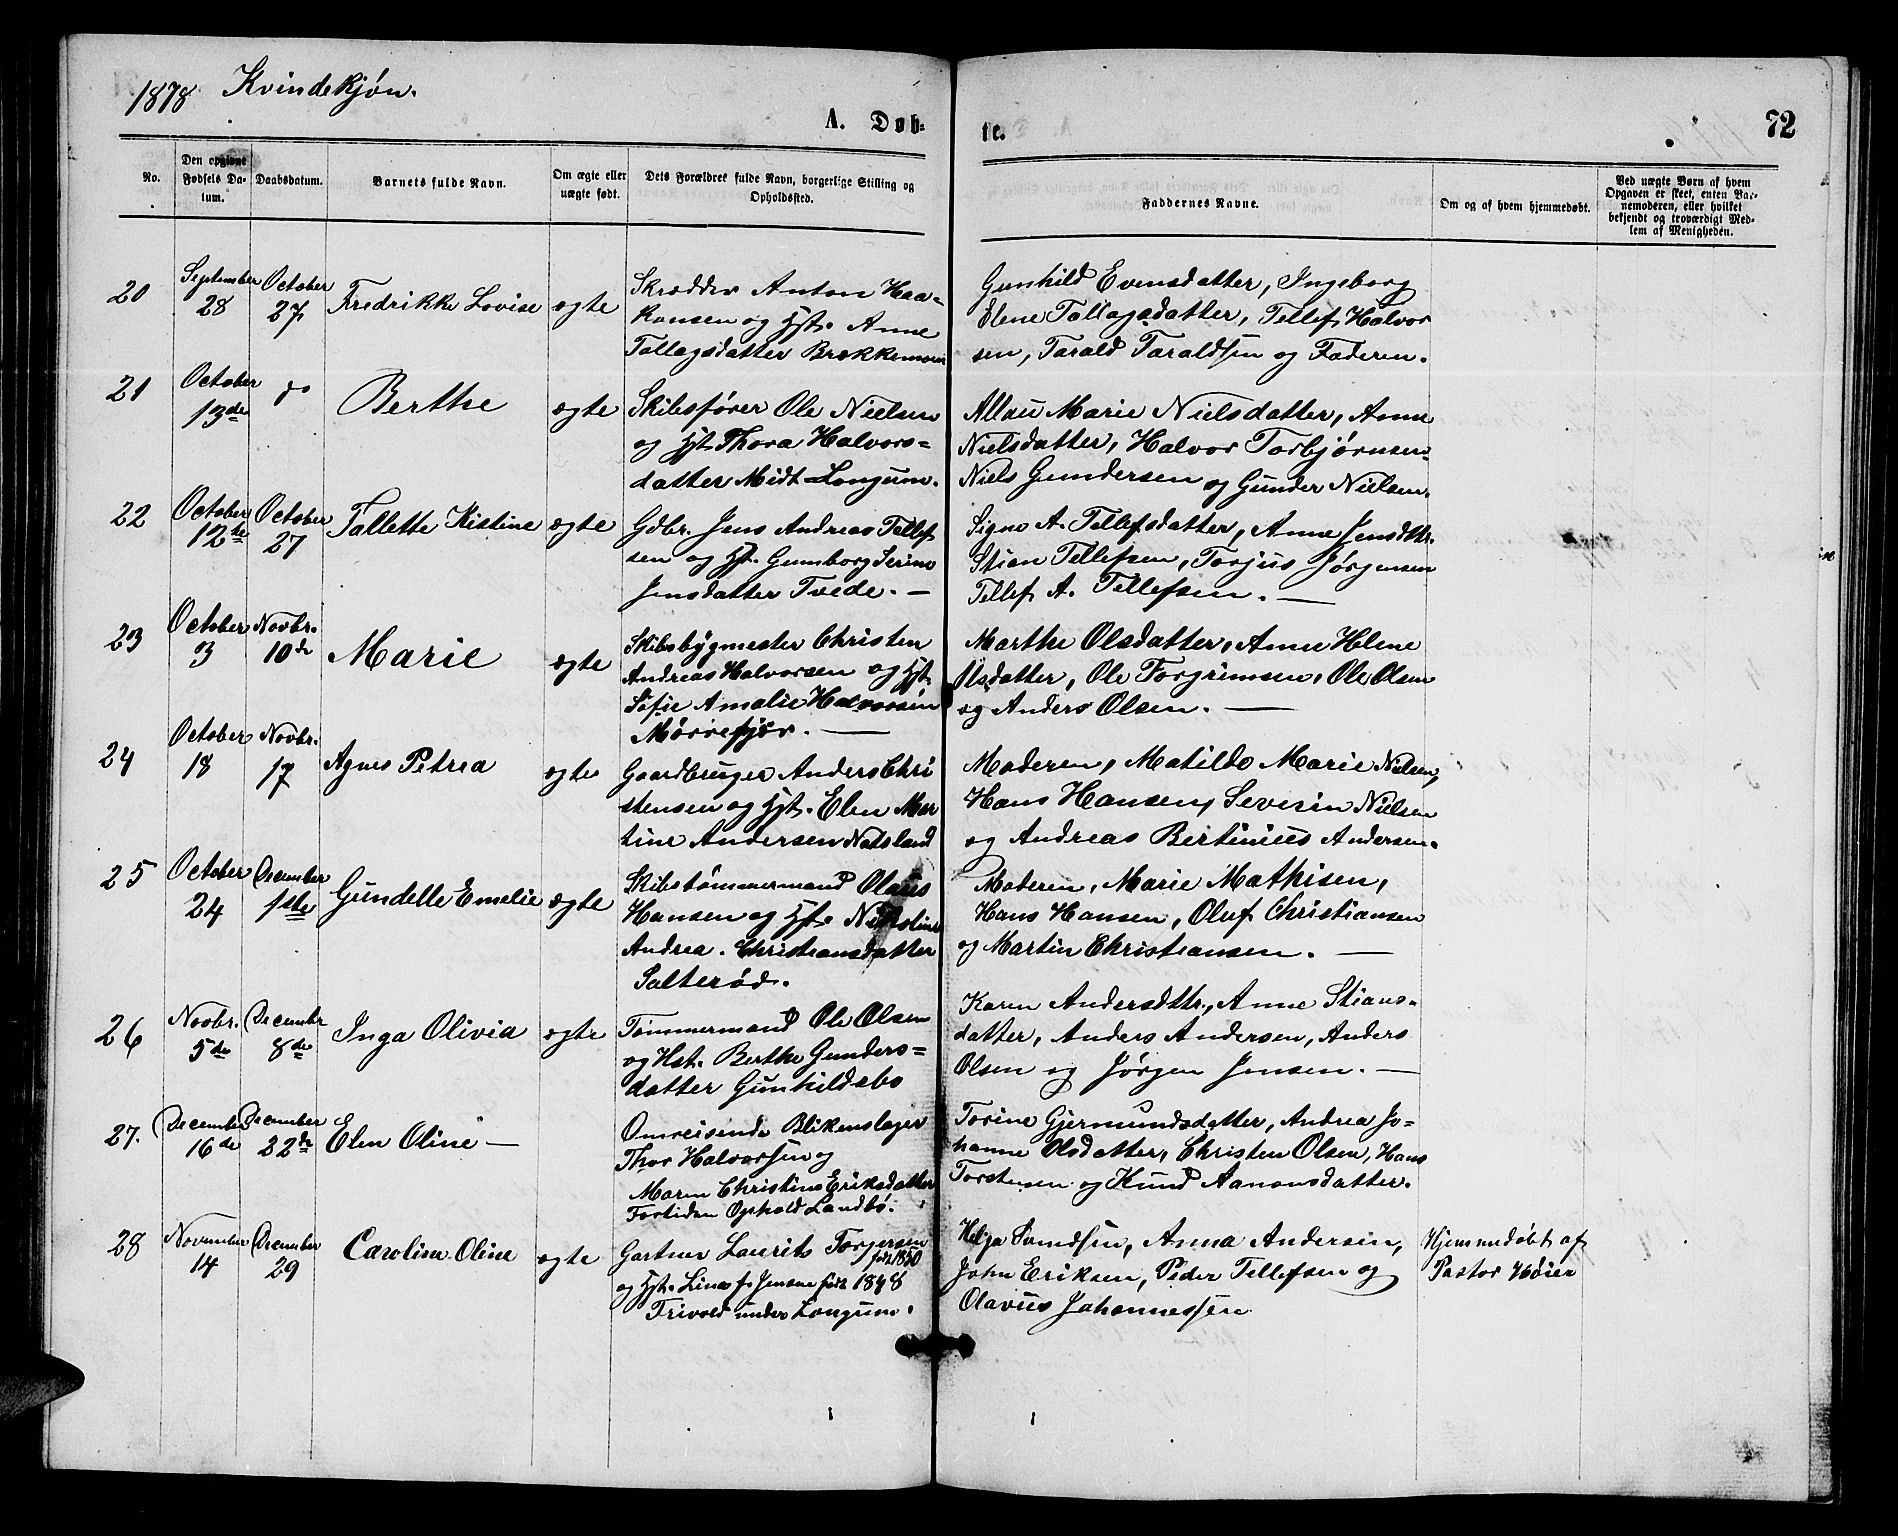 1878. Kvindekjøn.
A. Døb-
te.
72
No.
Den opgivne Fødsels Datum.
Daabsdatum.
Barnets fulde Navn.
Om ægte eller uægte født.
Dets Forældres fulde Navn, borgerlige Stilling og Opholdssted.
Faddernes Navne.
Om og af hvem hjemmedøbt.
Ved uægte Børn af hvem Opgaven er skeet, enten Barnemoderen, eller hvilket bekjendt og troværdigt Medlem af Menigheden.
20 September 28 October 27 Fredrikke Lovise ægte
Skrædder Anton Haa-
konsen og Hst. Anne
Tallagsdatter Brekkemoen
Gunhild Evensdatter, Ingeborg
Elene Tallagsdatter, Tellef Halvor
sen, Tarald Taraldsen og Faderen.
21 October 13de do Berthe ægte
Skibsfører Ole Nielsen
og Hst. Thora Halvors-
datter Midt-Longum.
Marie Nielsdatter, Anne
Nielsdatter, Halvor Torbjørnsen
Niels Gundersen og Gunder Nielsen.
22 October 12te October 27 Tallette Kistine ægte
Gdbr. Jens Andreas Tellef
sen og Hst. Gunborg Serine
Jensdatter Tvede. —
Signe A. Tellefsdatter, Anne Jensdttr.
Stian Tellefsen, Torjus Jørgensen
Tellef A. Tellefsen. —
23 October 3 Novbr. 10de Marie ægte
Skibsbygmester Christen
Andreas Halvorsen og Hst.
Sofie Amalie Halvorsen
Mørrefjær. —
Marthe Olsdatter, Anne Helene
Olsdatter, Ole Torgrimsen, Ole Olsen
og Anders Olsen. —
24 October 18 Novbr. 17 Agnes Petrea ægte
Gaardbruger Anders Chri
stensen og Hst. Elen Mar
tine Andersen Natsland
Moderen, Matilde Marie Nielsen,
Hans Hansen, Severin Nielsen
og Andreas Bertinius Andersen.
25 October 24 December 1ste Gundelle Emelie ægte
Skibstømmermand Olaus
Hansen og Hst. Nikoline
Andrea Christiansdatter
Salterød.
Moderen, Marie Mathisen,
Hans Hansen, Oluf Christiansen
og Martin Christiansen. —
26 Novbr. 5de Decembr 8de Inga Olivia ægte
Tømmermand Ole Olsen
og Hst. Berthe Gunders-
datter Gunhildsbo
Karen Andersdttr., Anne Stians-
datter, Anders Andersen, Anders
Olsen og Jørgen Jensen. —
27. December 16de December 22de Elen Oline —
Omreisende Blikenslager
Thor Halvorsen og
Maren Christine Eriksdatter
Fortiden Ophold Landbø.
Torine Gjermundsdatter, Andrea Jo-
hanne Olsdatter, Christen Olsen, Hans
Torstensen og Knud Aanonsdatter.
28 November 14 December 29 Caroline Oline ægte
Gartner Laurits Torgersen
født 1850
og Hst. Lina f. Jensen født 1848
Trivold under Longum.
Helga Svendsen, Anna Andersen,
John Eriksen, Peder Tellefsen og
Olavus Johannessen
Hjemmedøbt af
Pastor Høier